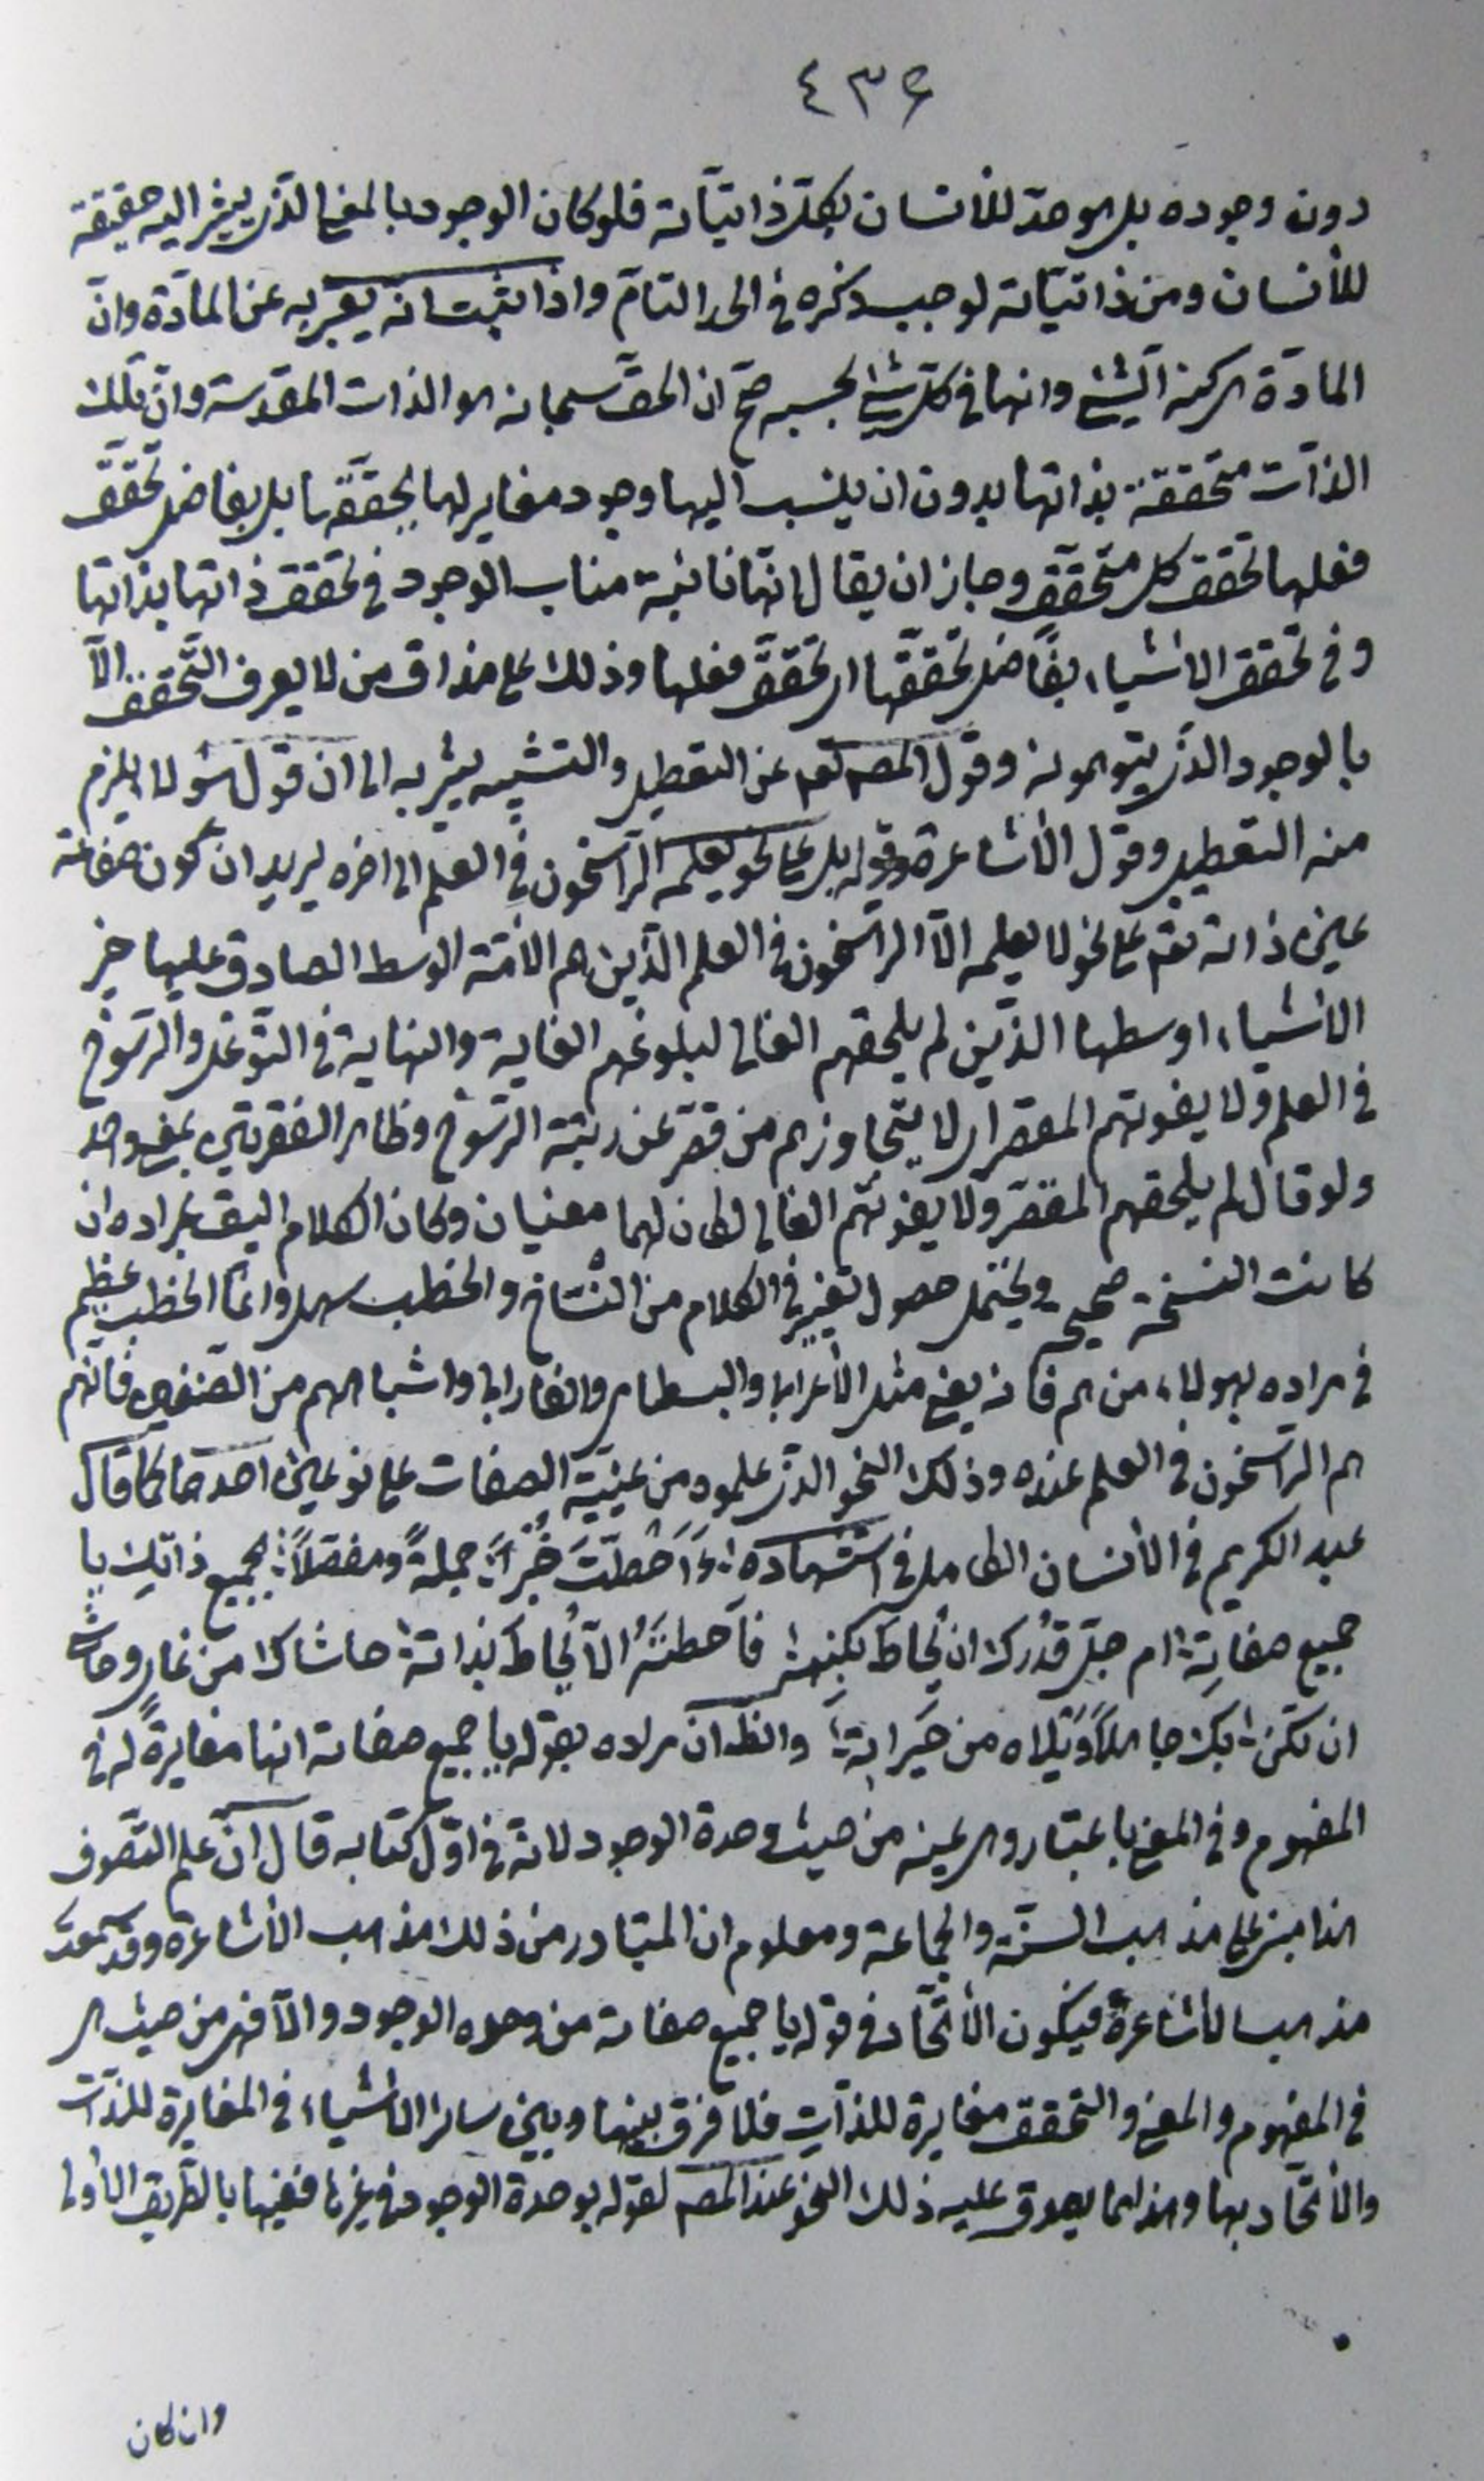 ٤٣۶
دون وجوده بل هو حدّ للأنسان بكلّ ذاتيّاته فلو كان الوجود بالمعنى الذى يشير اليه حقيقة
للأنسان ومن ذاتيّاته لوجب ذكره فى الحد التامّ واذا ثبت انه يعبّر به عن المادّة وانّ
المادّة هى كنه الشئ وانها فى كلّ شئ بحسبه صحّ ان الحقّ سبحانه هو الذات المقدسة وانّ تلك
الذّات متحققة بذاتها بدون ان ينسب اليها وجود مغاير لها بحقّقها بل بفاضل تحقّق
فعلها تحقق كل متحقّق وجاز ان يقال انّها نائبة مناب الوجود فى تحقق ذاتها بذاتها
وفى تحقق الاشياء بفاضل تحقّقها اى تحقّق فعلها وذلك على مذاق من لا يعرف التّحقق الّا
بالوجود الذى يتوهمونه وقول المصه تعم عن التعطيل والتشبيه يشير به الى ان قول هؤلاء يلزم
منه التعطيل وقول الأشاعرة وقوله بل على نحو يعلمه الرّاسخون فى العلم الى اخره يريد ان كون صفاته
عين ذاته تعم على نحو لا يعلمه الّا الرّاسخون فى العلم الّذين هم الامّة الوسط الصادق عليها خير
الأشياء اوسطها الذّين لم يلحقهم الغالى لبلوغهم الغاية والنهاية فى التّوغل والرّسوخ
فى العلم ولا يفوتهم المقصر اى لا يتجاوزهم من قصّر عن رتبة الرّسوخ وظاهر الفقرتين بمعنى واحد
ولو قال لم يلحقهم المقصّر ولا يفوتهم الغالى لكان لهما معنيان وكان الكلام اليق بمراده ان
كانت النسخة صحيحة ويحتمل حصول تغيير فى الكلام من النّسّاخ والخطب سهل وانّما الخطب عظيم
فى مراده بهولاء من هم فانه يعنى مثل الأعرابى والبسطامى والفارابى واشباههم من الصّنفين فانّهم
هم الرّاسخون فى العلم عنده وذلك النحو الذى علموه من عينيّة الصفات على نوعين احدهما كما قال
عبد الكريم فى الأنسان الكامل فى استشهاده ءَاَحَطْتَ خُبْراً جملةً ومفصّلاً بجميع ذاتك يا
جميع صفاتِه ام جلّ قدرك ان يُحاط بكنهه فاَحطتَهُ الّا يُحاط بذاته حاشاك من غاى وحاشا
ان تكن بك جاهلاً ويلاه من حَيراته والظّ انّ مراده بقوله يا جميع صفاته انها مغايرة له فى
المفهوم وفى المعنى باعتبار وهى عينه من حيث وحدة الوجود لانه فى اوّل كتابه قال انّ علم التصّوف
هذا مبنى على مذهب السنّة والجماعة ومعلوم ان المتبادر من ذلك مذهب الأشاعرة وقد سمعتَ
مذهب الأشاعرة فيكون الأتّحاد فى قوله يا جميع صفاته من وحدة الوجود والّا فهى من حيث هى
فى المفهوم والمعنى والتحقق مغايرة للذّات فلا فرق بينها وبين سائر الأشياء فى المغايرة للذّات
والأتّحاد بها وهذا مما يصدق عليه ذلك النحو عند المصه لقوله بوحدة الوجود فى غيرها ففيها بالطّريق الأولى
وان كان